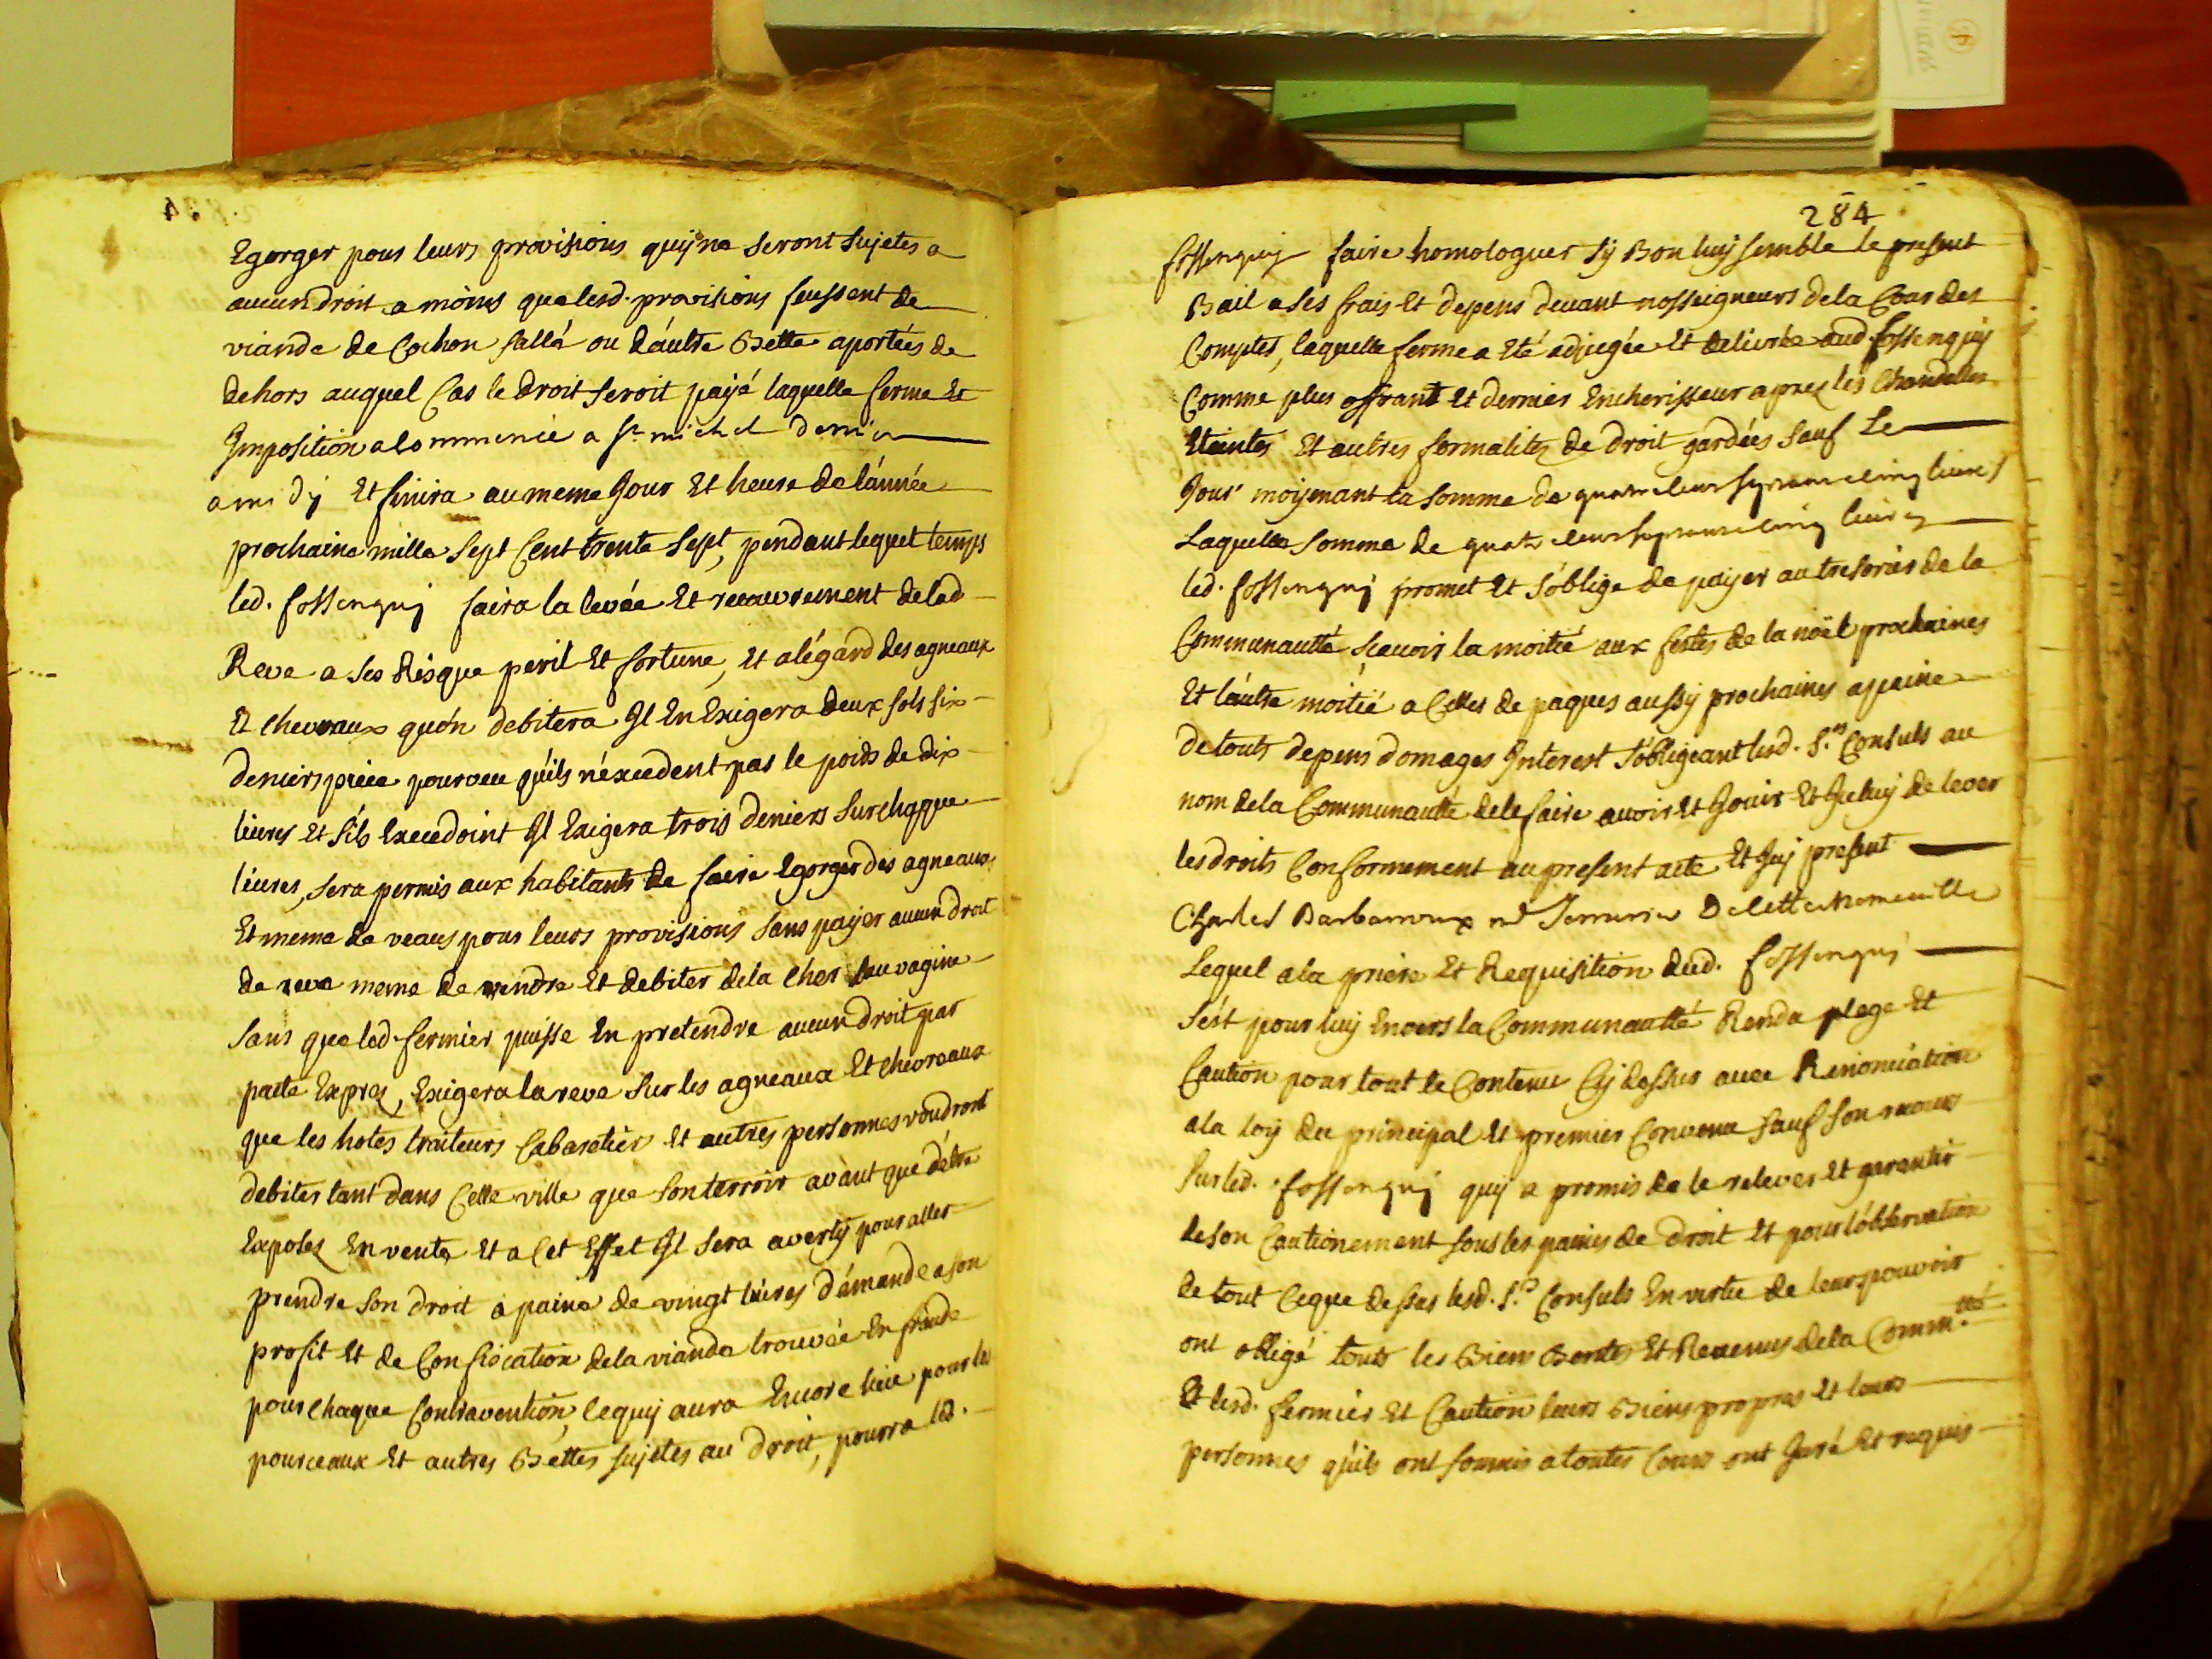 Egorger pour leurs provisions quy ne seront sujetes a
aucun droit a moins que lesd. provisions feussent de
viande de Cochon sallé ou d'autre Bette aportées de
dehors auquel Cas le droit seroit payé laquelle ferme Et
Imposition a Commencé a St michel dernier
a midy Et finira au meme Jour Et heure de l'année
prochaine mille sept Cent trente sept, pendant lequel temps
led. fossenquy faira la levée Et recouvrement de lad
Reve a ses Risque peril Et fortune, Et a légard des agneaux
Et chevraux qu'on debitera Il En Exigera deux sols six
deniers piece pourveu quils n'éxcedent pas le poids de dix
livres Et s'ils Excedoint Il Exigera trois deniers sur chaque
livres, sera permis aux habitants de faire Egorger des agneaux
Et meme de veaus pour leurs provisions sans payer aucun droit
de reve meme de vendre Et debiter de la Cher sauvagine
sans que led. fermier puisse En pretendre aucun droit par
pacte Expres, Exigera la reve sur les agneaux Et chevreaux
que les hotes traiteurs Cabaretier Et autres personnes voudront
debiter tant dans Cette ville que son terroir avant que d'étre
Exposez En vente Et a Cet Effet Il sera averty pour aller
prendre son droit a paine de vingt livres d'émande a son
profit Et de Confiscation de la viande trouvée En fraude
pour chaque Contravention, Ce quy aura Encore lieu pour les
pourceaux Et autres Bettes sujetes au droit, pourra led.
284
fossenquy faire homologuer sy Bon luy semble le present
Bail a ses frais Et depens devant nosseigneurs de la Cour des
Comptes, laquelle ferme a Eté adjugée Et delivrée aud. fossenquy
Comme plus offrant Et dernier Encherisseur aprez les Chandelles
Eteintes Et autres formalites de droit gardées sauf Le
Jour moyenant la somme de quatre cens septante cinq livres
Laquelle somme de quatre cens septante cinq livres
led. fossenquy promet Et s'oblige de payer au tresorier de la
Communautté sçavoir la moitié aux festes de la noël prochaines
Et l'autre moitié a Celles de paques aussy prochaines a paine
de touts depens domages Interest s'obligeant lesd. Srs Consuls au
nom de la Communautté de le faire avoir Et Jouir Et Iceluy de lever
les droits Conformement au present acte Et Icy present
Charles Barbarroux
Lequel a la priere Et Requisition dud. fossenquy
s'est pour luy Envers la Communautté Rendu plege Et
Caution pour tout le Contenu Cy dessus avec Renonciation
a la loy du principal Et premier Convenu sauf son recours
sur led. fossenquy quy a promis de le relever Et garantir
de son Cautionement sous les paines de droit Et pour l'observation
de tout Ce que dessus lesd. Srs Consuls En vertu de leur pouvoir
ont obligé touts les Biens Rentes Et Revenus de la Comm.tté
Et lesd. fermier Et Caution leurs Biens propres Et leurs
personnes qu'ils ont soumis a toutes Cours ont Juré Et requis